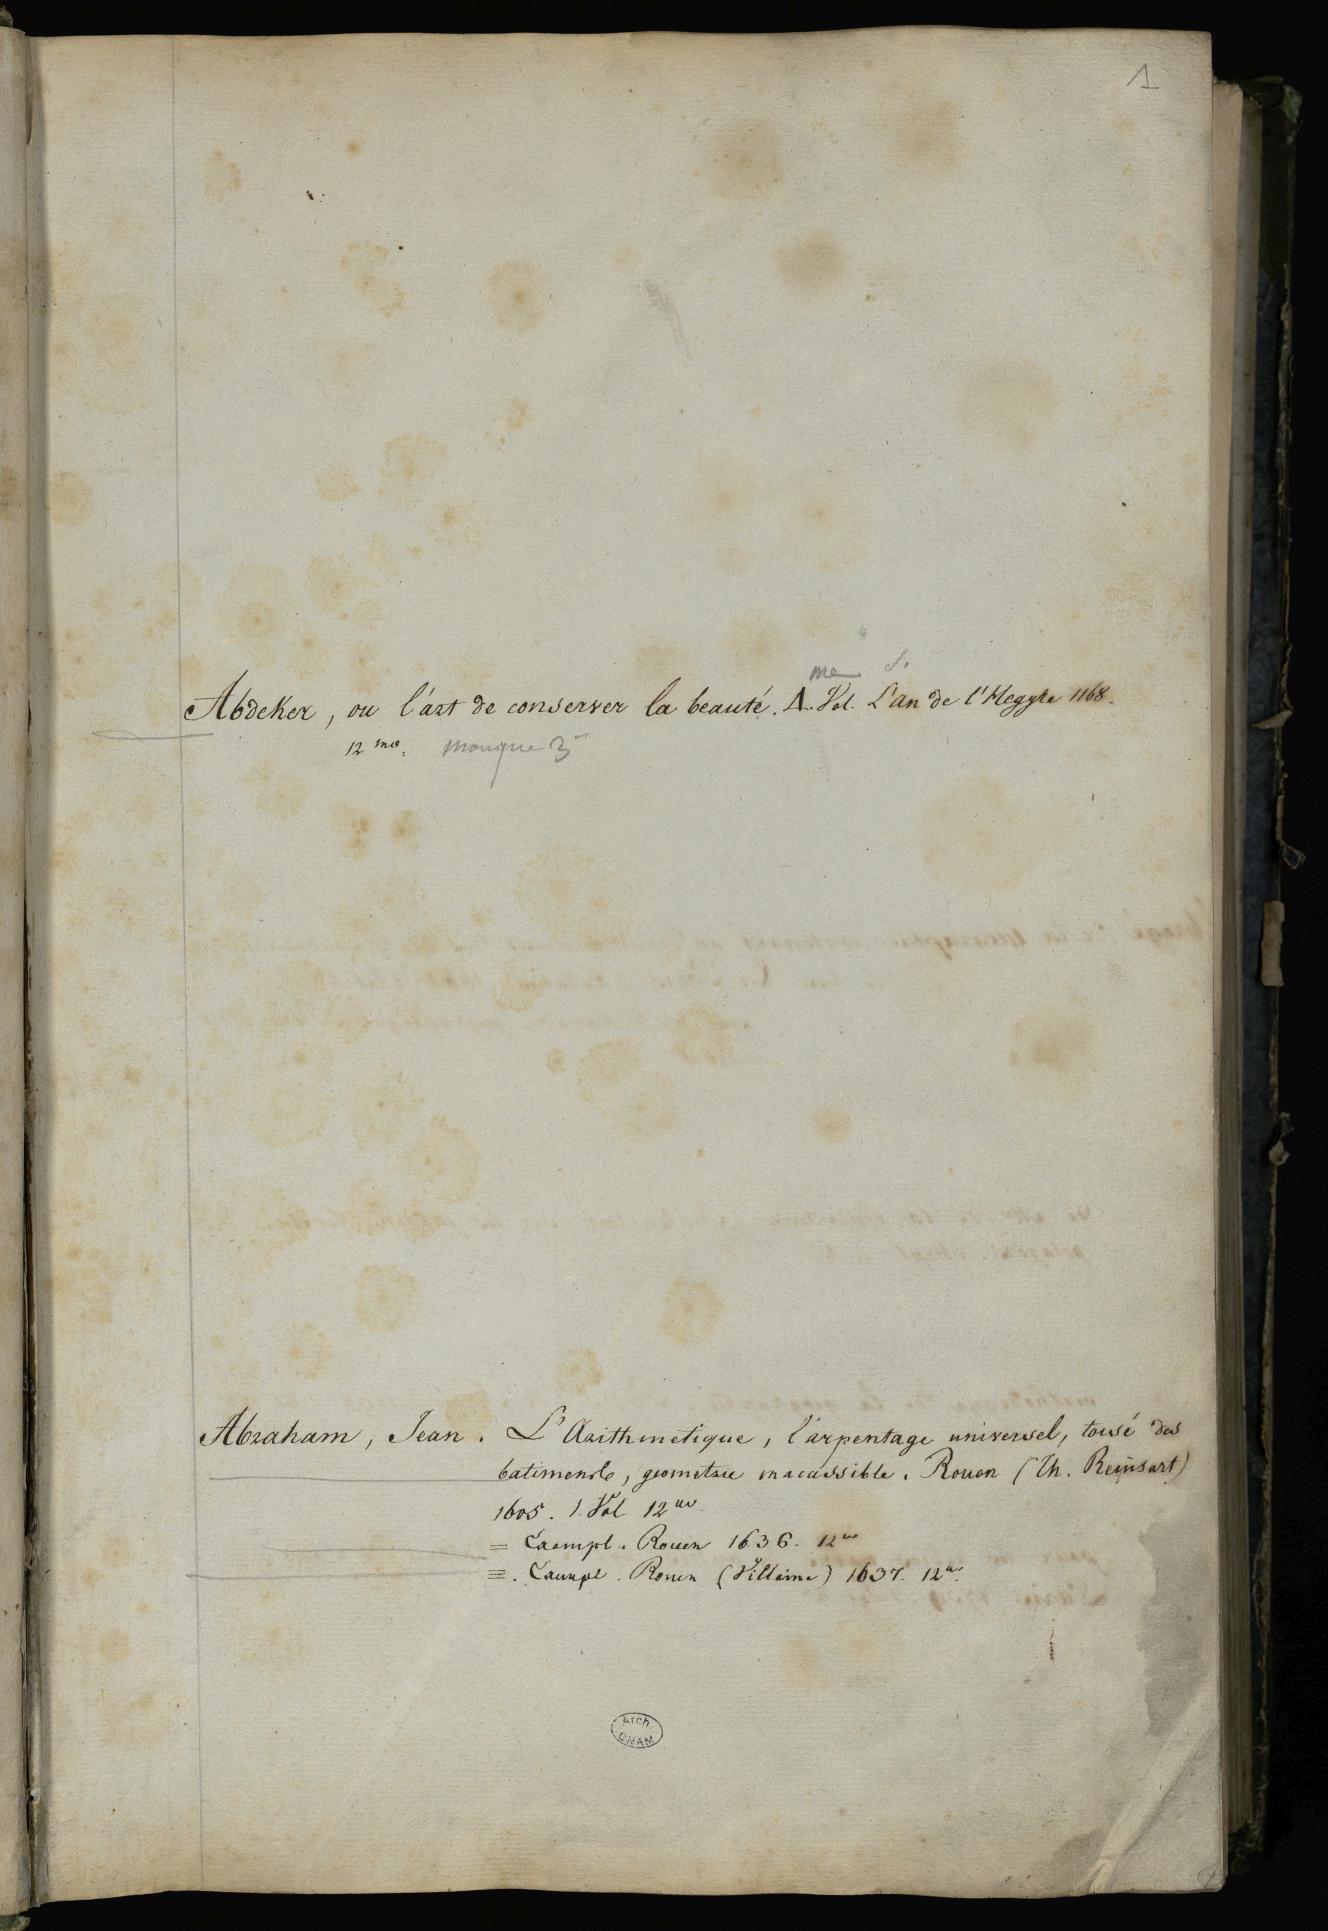 1
Abdeker, ou l'art de conserver la beauté. 4. Vol. L'an de l'Hegyre 1168.
12 mo. manque 3
Abraham, Jean. L'Arithmetique, l'arpentage universel, toisé des
batiments, geometrie inacassible. Rouen (Th. Reinsart)
1605. 1. Vol 12mo.
= Exempl. Rouen 1636. 12mo
=. Exempl. Rouen (Villaine) 1637. 12mo.
Arch.
CNAM